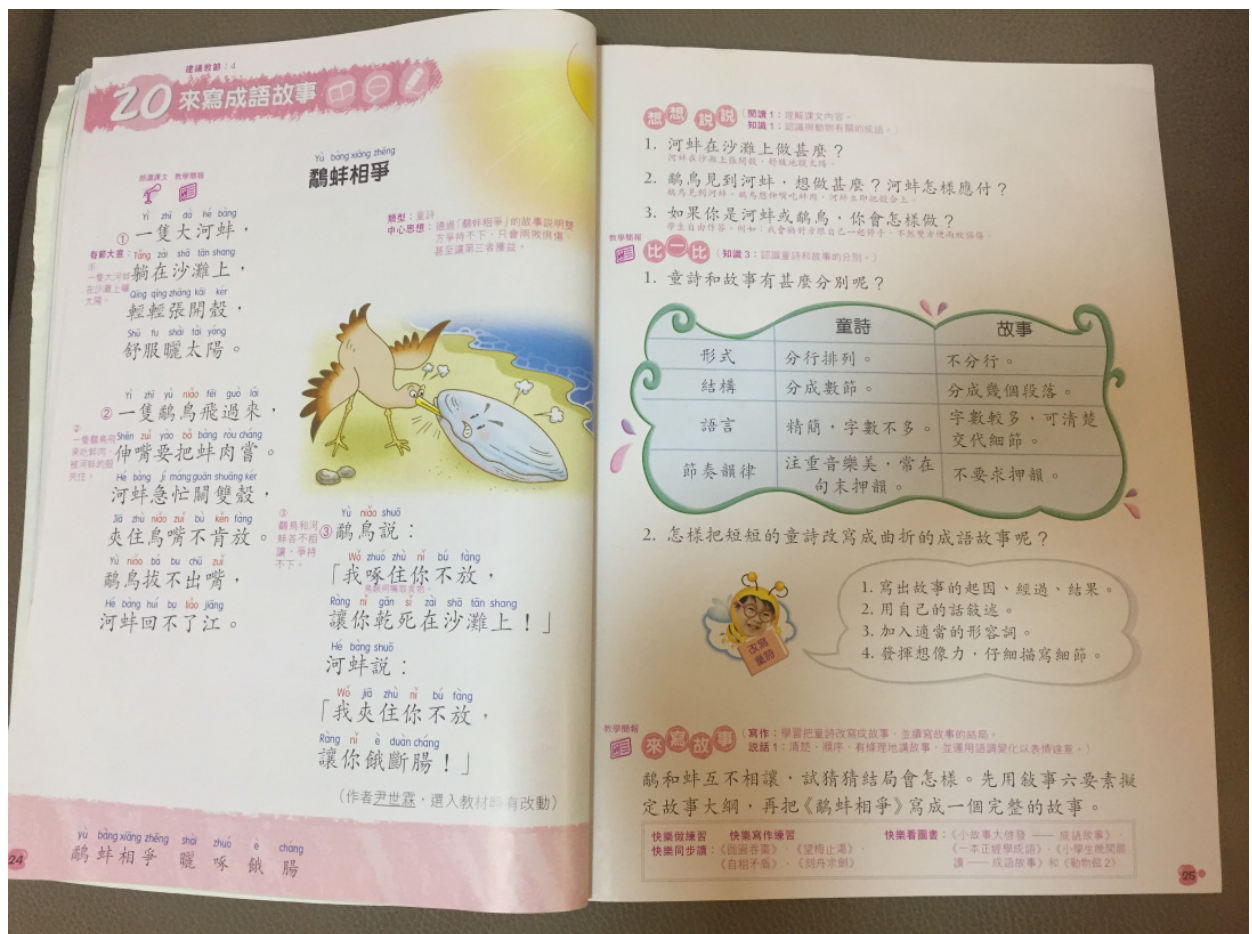 建議教節：4
20 來寫成語故事
朗讀課文 教學簡報
Yù bàng xiāng zhēng
鷸蚌相爭
類型：童詩
中心思想：通過「鷸蚌相爭」的故事說明雙
方爭持不下，只會兩敗俱傷，
甚至讓第三者獲益。
Yì zhī dà hé bàng
①一隻大河蚌，
每節大意：
Tǎng zài shā tān shang
躺在沙灘上，
①
一隻大河蚌
在沙灘上曬
太陽。
Qīng qīng zhāng kāi ké
輕輕張開殼，
Shū fu shài tài yáng
舒服曬太陽。
Yì zhī yù niǎo fēi guò lái
②一隻鷸鳥飛過來，
②
一隻鷸鳥飛
來吃蚌肉，
被河蚌的殼
夾住。
Shēn zuǐ yào bǎ bàng ròu cháng
伸嘴要把蚌肉嘗。
Hé bàng jí máng guān shuāng ké
河蚌急忙關雙殼，
Jiā zhù niǎo zuǐ bù kěn fàng
夾住鳥嘴不肯放。
Yù niǎo bá bu chū zuǐ
鷸鳥拔不出嘴，
Hé bàng huí bu liǎo jiāng
河蚌回不了江。
③
鷸鳥和河
蚌各不相
讓，爭持
不下。
Yù niǎo shuō
③鷸鳥說：
Wǒ zhuó zhù nǐ bú fàng
「我啄住你不放，
鳥類用嘴取食物。
Ràng nǐ gān sǐ zài shā tān shang
讓你乾死在沙灘上！」
Hé bàng shuō
河蚌說：
Wǒ jiā zhù nǐ bú fàng
「我夾住你不放，
Ràng nǐ è duàn cháng
讓你餓斷腸！」
（作者尹世霖，選入教材時有改動）
yù bàng xiāng zhēng shài zhuó è cháng
鷸蚌相爭 曬 啄 餓 腸
24
想想說說（閱讀1：理解課文內容。
知識1：認識與動物有關的成語。）
1. 河蚌在沙灘上做甚麼？
河蚌在沙灘上張開殼，舒服地曬太陽。
2. 鷸鳥見到河蚌，想做甚麼？河蚌怎樣應付？
鷸鳥見到河蚌，鷸鳥想伸嘴吃蚌肉，河蚌立即把殼合上。
3. 如果你是河蚌或鷸鳥，你會怎樣做？
學生自由作答。例如：我會勸對方跟自己一起鬆手，不然雙方便兩敗俱傷。
教學簡報
比一比（知識3：認識童詩和故事的分別。）
1. 童詩和故事有甚麼分別呢？
童詩 故事
形式 分行排列。 不分行。
結構 分成數節。 分成幾個段落。
語言 精簡，字數不多。 字數較多，可清楚
交代細節。
節奏韻律 注重音樂美，常在
句末押韻。 不要求押韻。
2. 怎樣把短短的童詩改寫成曲折的成語故事呢？
1. 寫出故事的起因、經過、結果。
2. 用自己的話敍述。
3. 加入適當的形容詞。
4. 發揮想像力，仔細描寫細節。
改寫
童詩
教學簡報
來寫故事（寫作：學習把童詩改寫成故事，並續寫故事的結局。
說話1：清楚、順序、有條理地講故事，並運用語調變化以表情達意。）
鷸和蚌互不相讓，試猜猜結局會怎樣。先用敍事六要素擬
定故事大綱，再把《鷸蚌相爭》寫成一個完整的故事。
快樂做練習 快樂寫作練習
快樂同步讀：《囫圇吞棗》、《望梅止渴》、
《自相矛盾》、《刻舟求劍》
快樂看圖書：《小故事大啓發 —— 成語故事》、
《一本正經學成語》、《小學生晚間晨
讀 —— 成語故事》和《動物館2》
25